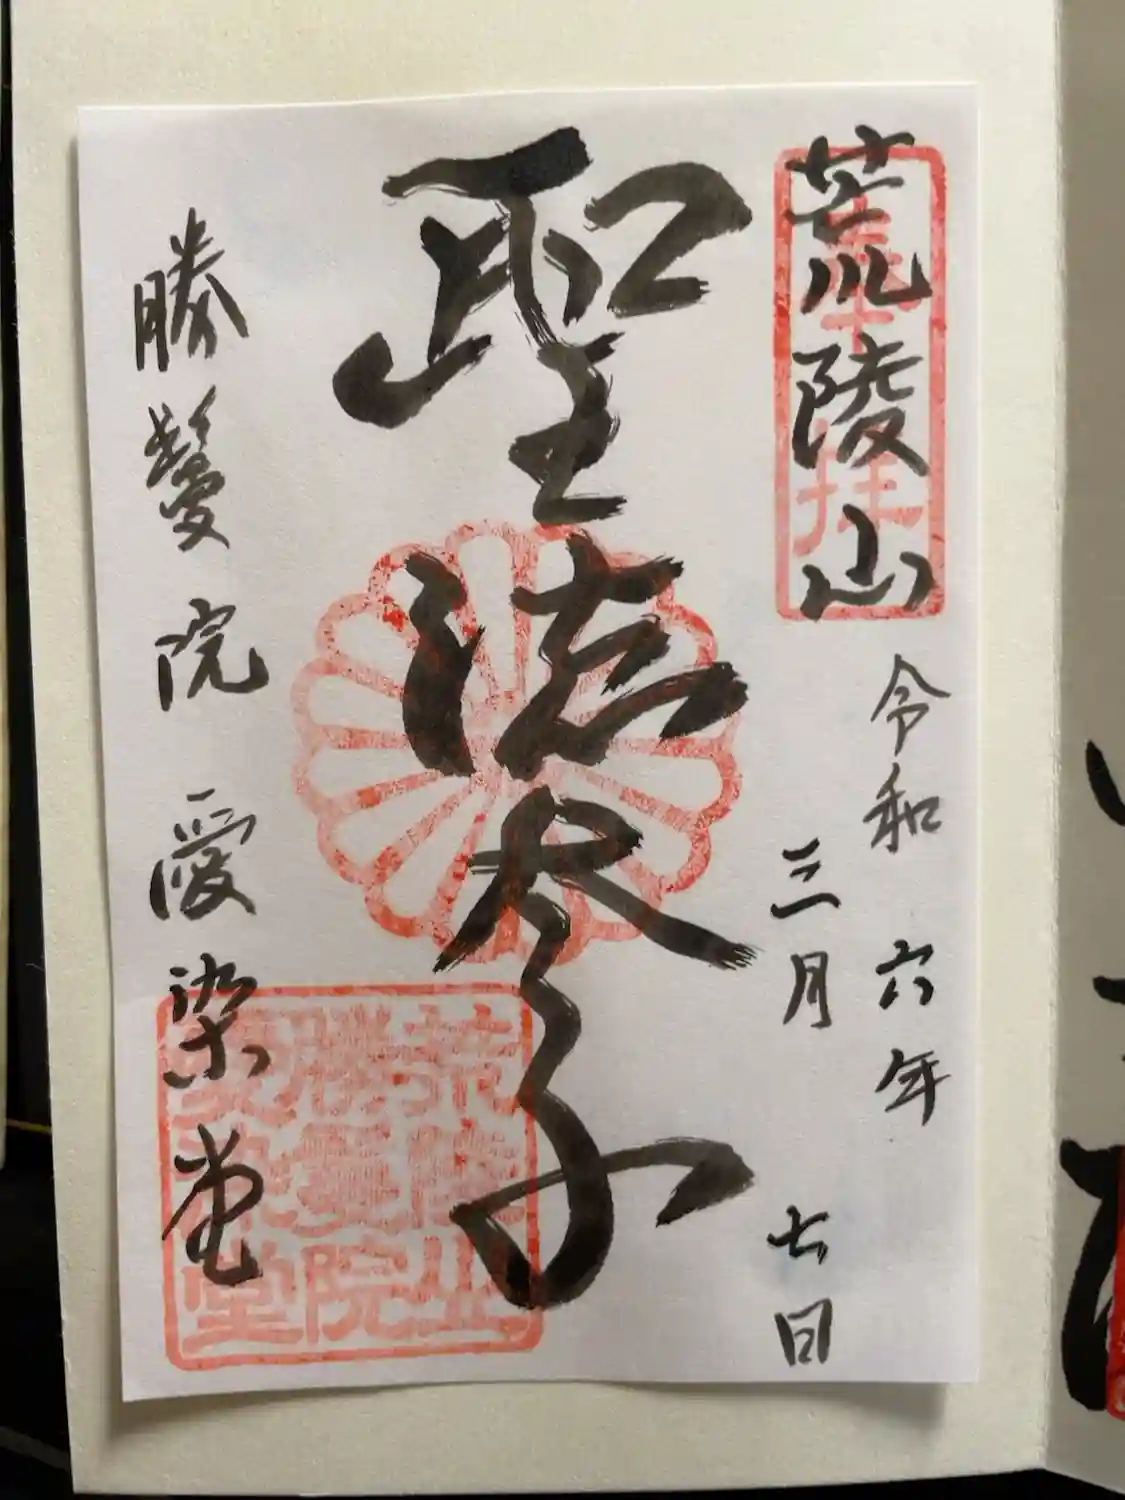 荒陵山
奉拝
令和六年
三月七日
聖徳太子
勝鬘院 愛染堂
荒陵山
勝鬘院
愛染堂